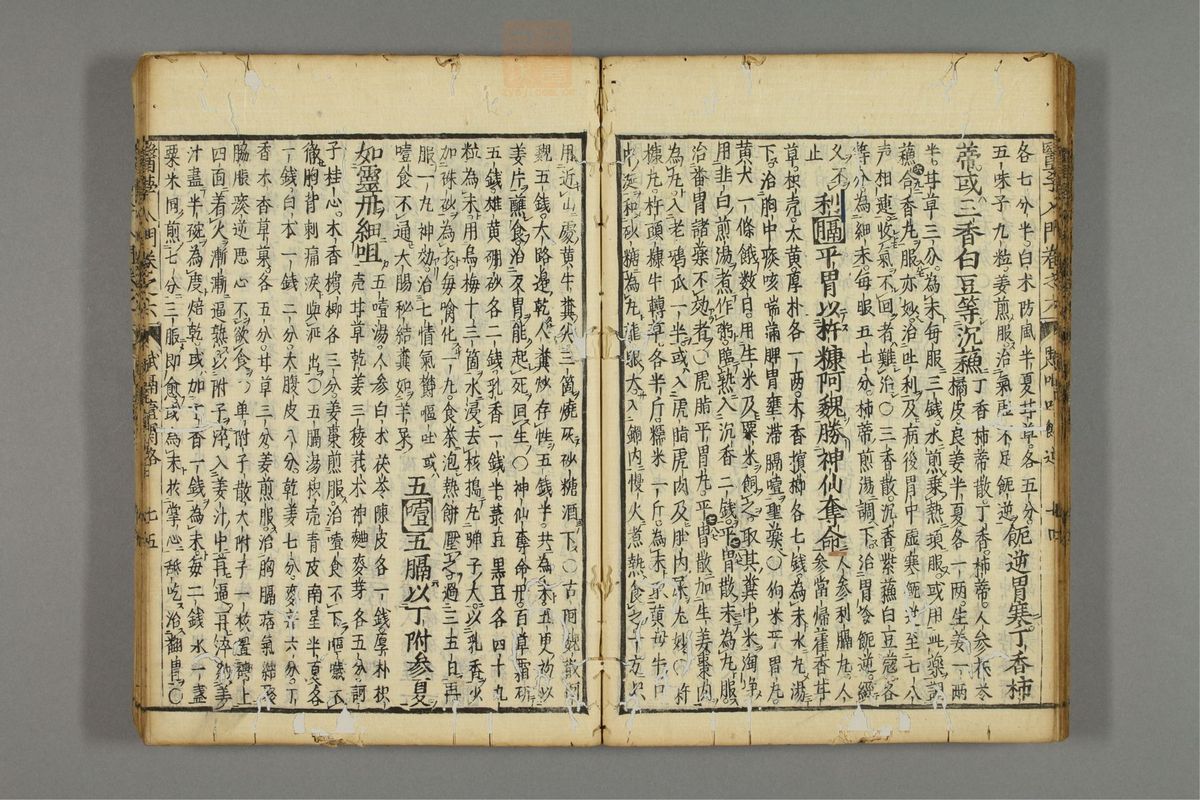 各七分半。白朮防風半夏芍草各五分。
五味子九粒。姜煎服。治氣虛不足呃逆。 呃逆胃寒丁香柿
蒂或三香白豆等沉蘇 丁香柿蒂散。丁香柿蒂。人參茯苓
橘皮。良姜半夏各一兩。生姜一兩
半。甘草三分。為末。每服三錢。水煎乘熱頓服。或用此藥調
蘇合香丸服。亦妙。治吐利及病後胃中虛寒呃逆。至七八
聲相連收氣不回者難治。○三香散。沉香紫蘇白豆蔻各
等分為細末。每服五七分。柿蒂煎湯調下。治胃冷呃逆。經
久不止 利膈平胃以杵糠阿魏勝神仙奪命 人參利膈丸。人
參當歸藿香甘
草。枳壳。大黃。厚朴各一兩。木香檳榔各七錢。為末水丸。湯
下。治胸中痰咳喘滿脾胃壅滯膈噎聖藥。○狗米平胃丸
黃犬一條餓數日。用生米及粟米飼之。取其糞中米淘淨
用韭白煎湯煮作粥。臨熟入沉香二錢。平胃散末為丸服。
治番胃諸藥不効者。○虎脂平胃丸。平胃散加生姜棗肉
為丸。入老鴉瓜一半。或入虎脂虎肉及肚內屎尤妙。○杵
糠丸。杵頭糠牛轉草。各半斤。糯米一斤。為末。取黃母牛口
中涎和砂糖為丸。龍眼大。入鍋內慢火煮熟食之。
醫學入門卷之六 七五
用近山處黃牛糞尖三箇燒灰。砂糖酒下。○古阿魏散。阿
魏五錢。大路邊乾人糞炒存性五錢半。共為末。五更初以
姜片蘸食。治久胃能起死回生。○神仙奪命丹。百草霜研
五錢。雄黃硼砂各二錢。乳香一錢半。菉豆黑豆各四十九
粒為末。用烏梅十三箇。水浸去核搗丸。彈子大。以乳香少
加硃砂為衣。每噙化一丸。食茶泡熱餅壓之。過三五日再
服一丸。神効。治七情氣鬱嘔吐或
噎食不通。大腸秘結。糞如羊屎。 五噎五膈以丁附參夏
如靈丹細咀 五噎湯。人參白朮茯苓陳皮各一錢。厚朴枳
壳甘草乾姜三稜莪朮神麯麥芽各五分訶
子桂心。木香檳榔各三分。姜棗煎服。治噎食不下。嘔噦不
徹。胸背刺痛。淚與涎出。○五膈湯。枳壳青皮南星半夏各
一錢。白朮一錢二分。大腹皮八分。乾姜七分。麥芽六分。丁
香木香草菓。各五分。甘草三分。姜煎服。治胸膈痞氣結聚
脇脹痰逆惡心不欲食。○單附子散。大附子一枚。置磚上
四面着火漸漸逼熱。以附子淬入姜汁中。再逼再淬。約姜
汁盡半碗為度。焙乾。或加丁香一錢。為末。每二錢。水一盞
粟米同煎七分。三服即愈。或為末。於掌心舐吃。治翻胃。○